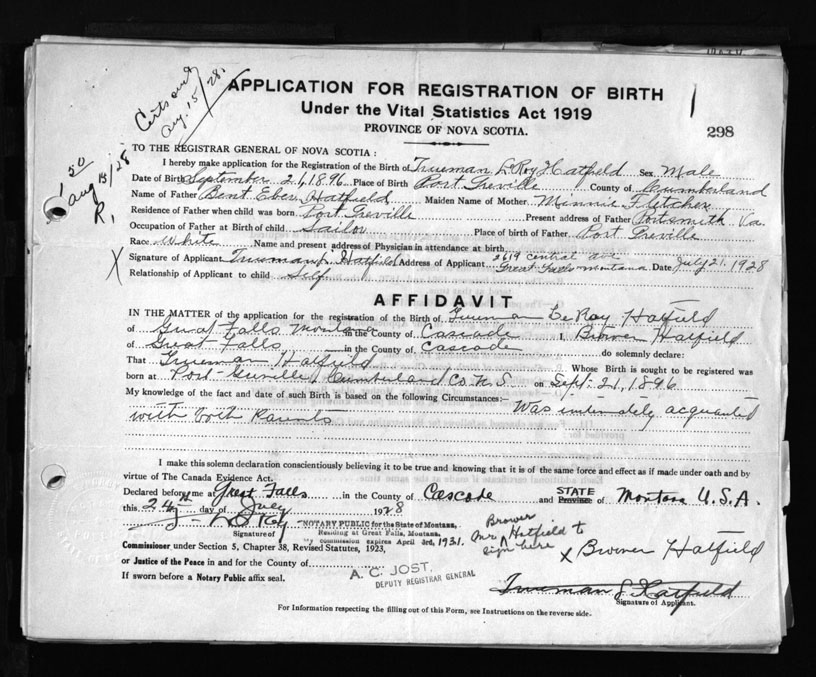 Certs only
Aug. 15/28.
APPLICATION FOR REGISTRATION OF BIRTH
Under the Vital Statistics Act 1919
PROVINCE OF NOVA SCOTIA.
298
1 50
Aug 15/28
R,
TO THE REGISTRAR GENERAL OF NOVA SCOTIA:
I hereby make application for the Registration of the Birth of Trueman LeRoy Hatfield Sex Male
Date of Birth September 21, 1896 Place of Birth Port Greville County of Cumberland
Name of Father Bent Eber Hatfield Maiden Name of Mother Minnie Fletcher
Residence of Father when child was born Port Greville Present address of Father Portsmith Va.
Occupation of Father at Birth of child Sailor Place of birth of Father Port Greville
Race White Name and present address of Physician in attendance at birth
X Signature of Applicant Trueman J. Hatfield Address of Applicant 2619 Central Ave Great Falls Montana Date July 21. 1928
Relationship of Applicant to child Self
AFFIDAVIT
IN THE MATTER of the application for the registration of the Birth of Trueman LeRoy Hatfield
of Great Falls Montana in the County of Cascade I, Brower Hatfield
of Great Falls in the County of Cascade do solemnly declare:
That Trueman Hatfield Whose Birth is sought to be registered was
born at Port Greville, Cumberland Co. N.S. on Sept. 21, 1896
My knowledge of the fact and date of such Birth is based on the following Circumstances:- Was intimately acquanted
with both Parents
I make this solemn declaration conscientiously believing it to be true and knowing that it is of the same force and effect as if made under oath and by
virtue of The Canada Evidence Act.
Declared before me at Great Falls in the County of Cascade and Province STATE of Montana U.S.A.
this 24th day of July 1928
NOTARY PUBLIC for the State of Montana,
Signature of Residing at Great Falls, Montana.
My commission expires April 3rd, 1931.
Mrs Brower Hatfield to
sign here
X Brower Hatfield
Commissioner under Section 5, Chapter 38, Revised Statutes, 1923,
or Justice of the Peace in and for the County of
A. C. JOST.
DEPUTY REGISTRAR GENERAL
If sworn before a Notary Public affix seal.
Trueman J. Hatfield
Signature of Applicant.
For Information respecting the filling out of this Form, see Instructions on the reverse side.